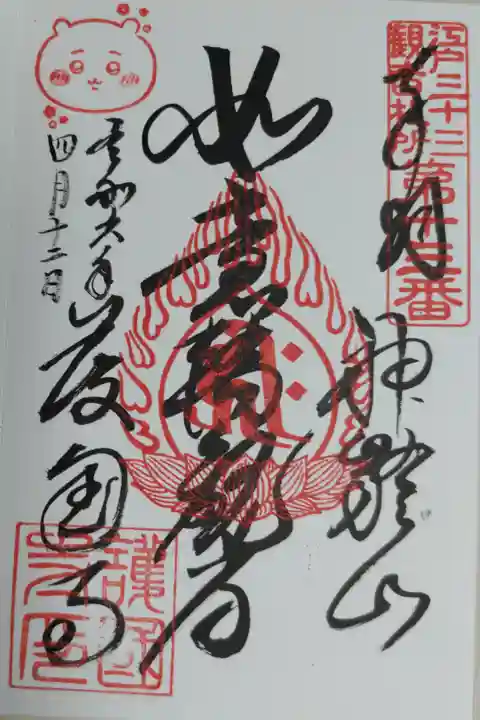 江戸三十三
観音札所
第十三番
奉拝
神齢山
如意輪観音
令和六年
四月十二日
護国寺
護國